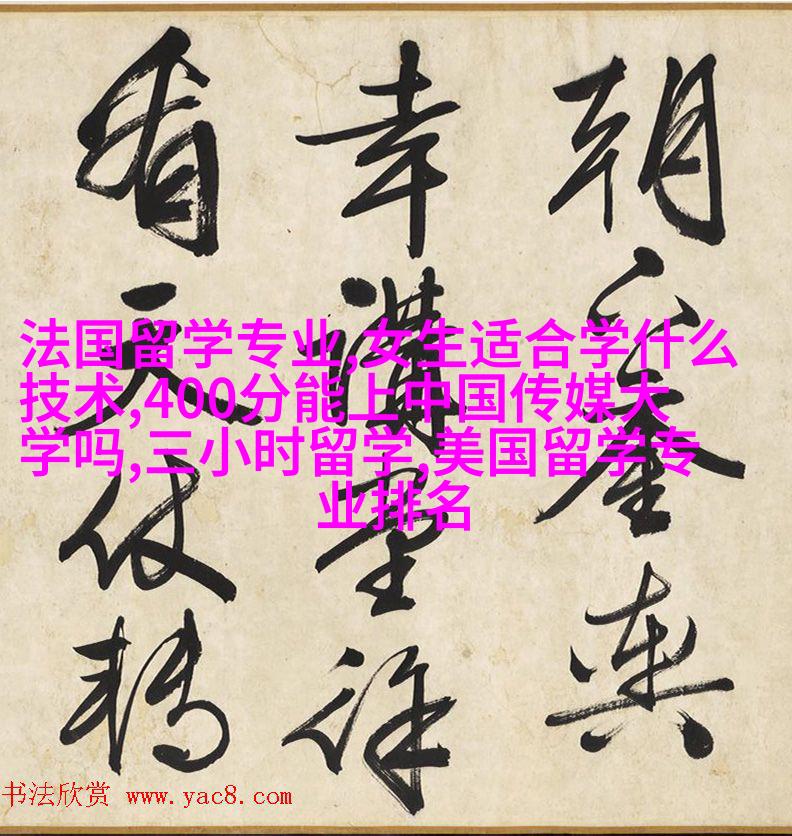 朝鑾輿
幸講徐
看天仗轉
法国留学专业,女生适合学什么
技术,400分能上中国传媒大
学吗,三小时留学,美国留学专
业排名
书法欣赏 www.yac8.com